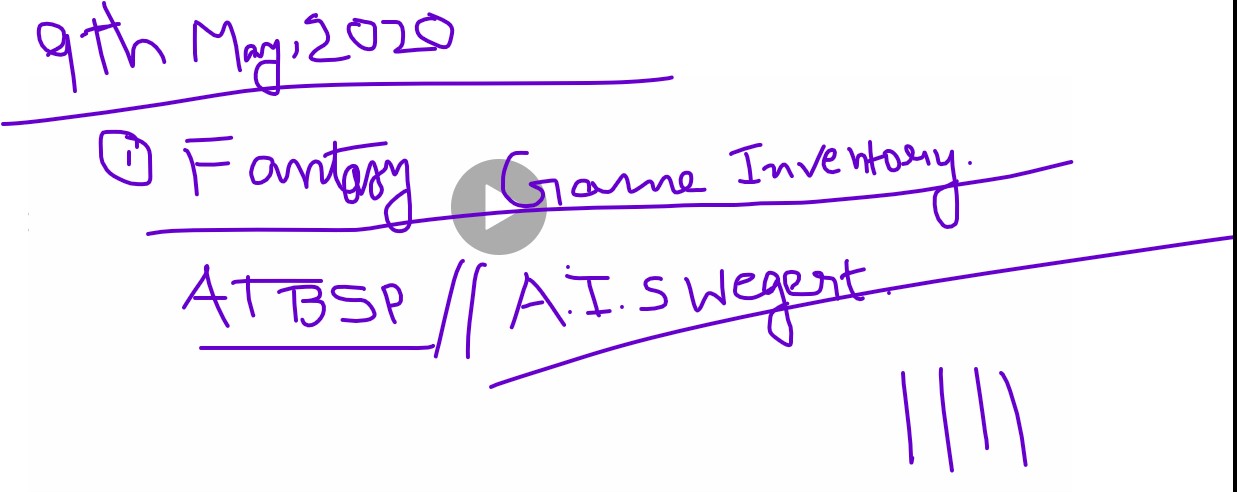 9th May, 2020
① Fantasy Game Inventory.
ATBSP // A.I. Swegert.